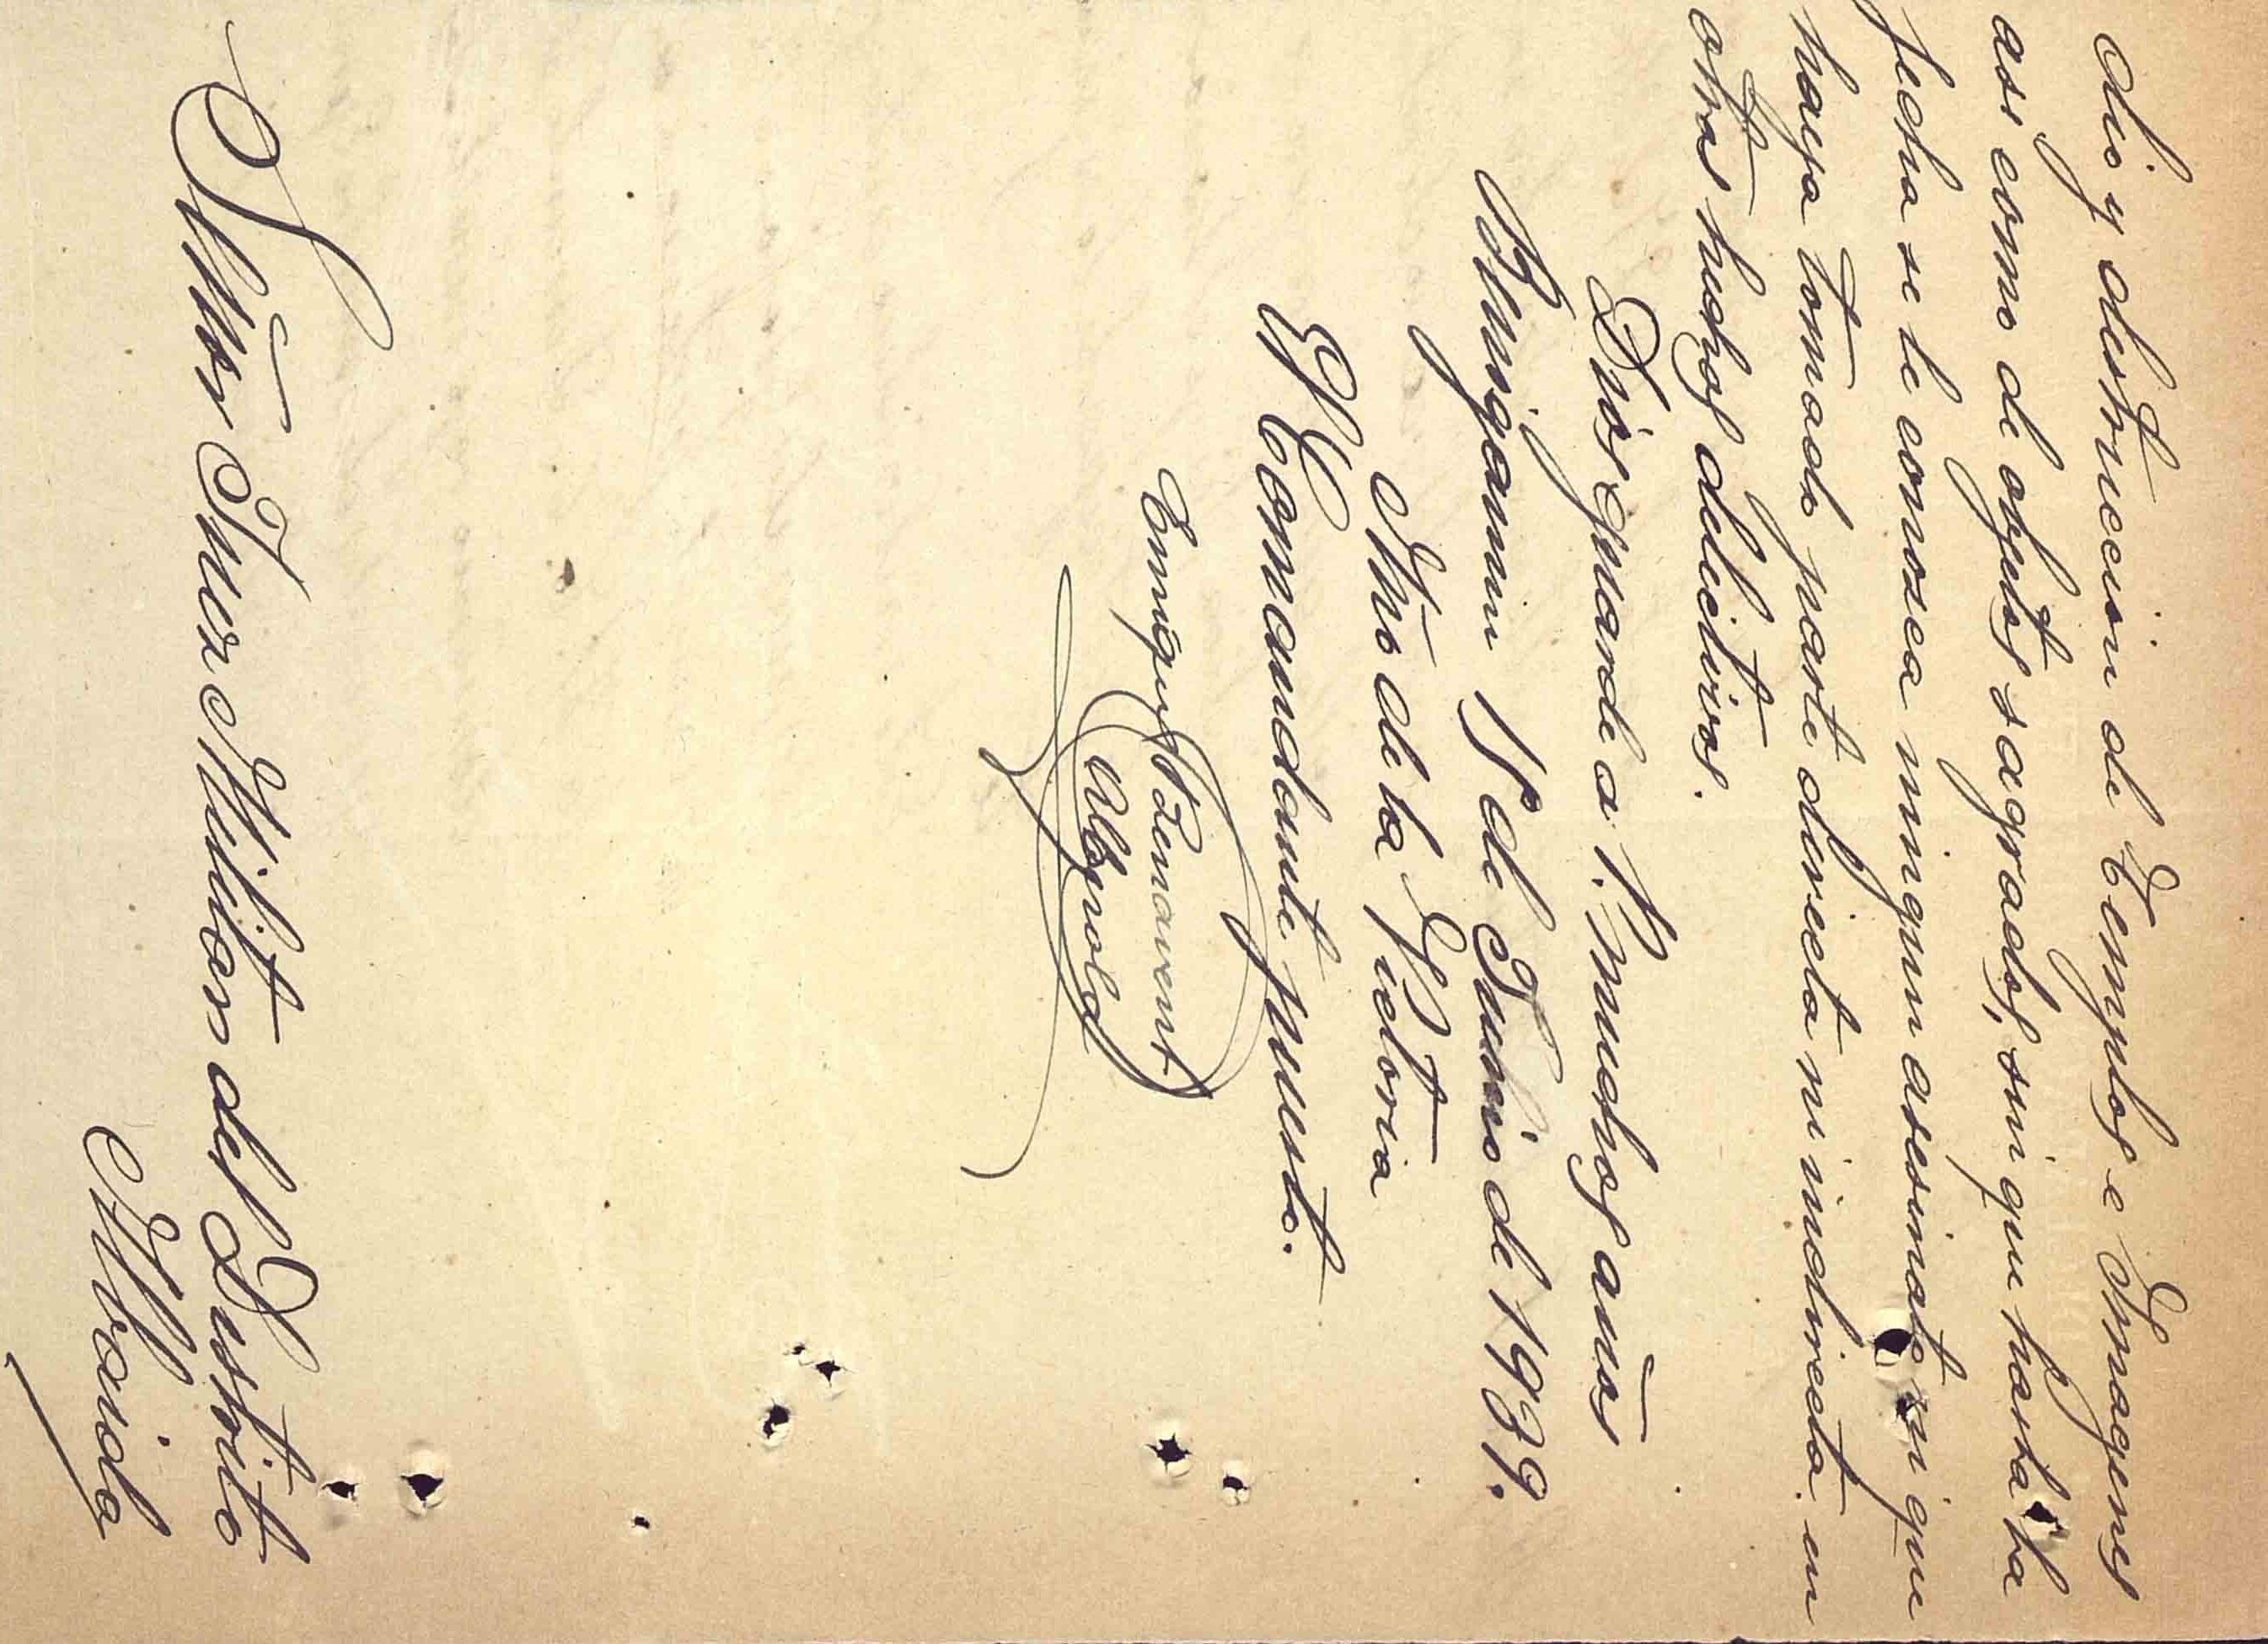 dio y destrucción de Templos e Imagenes
asi como de objetos sagrados, sin que hasta la
fecha se le conozca ningun asesinato ni que
haya tomado parte directa ni indirecta en
otros hechos delictivos.
Dios guarde a V. muchos años
Beniganim 15 de Junio de 1939.
Año de la Victoria
El Comandante puesto.
Enrique Benavent
Señor Juez Militar del Distrito
Albaida